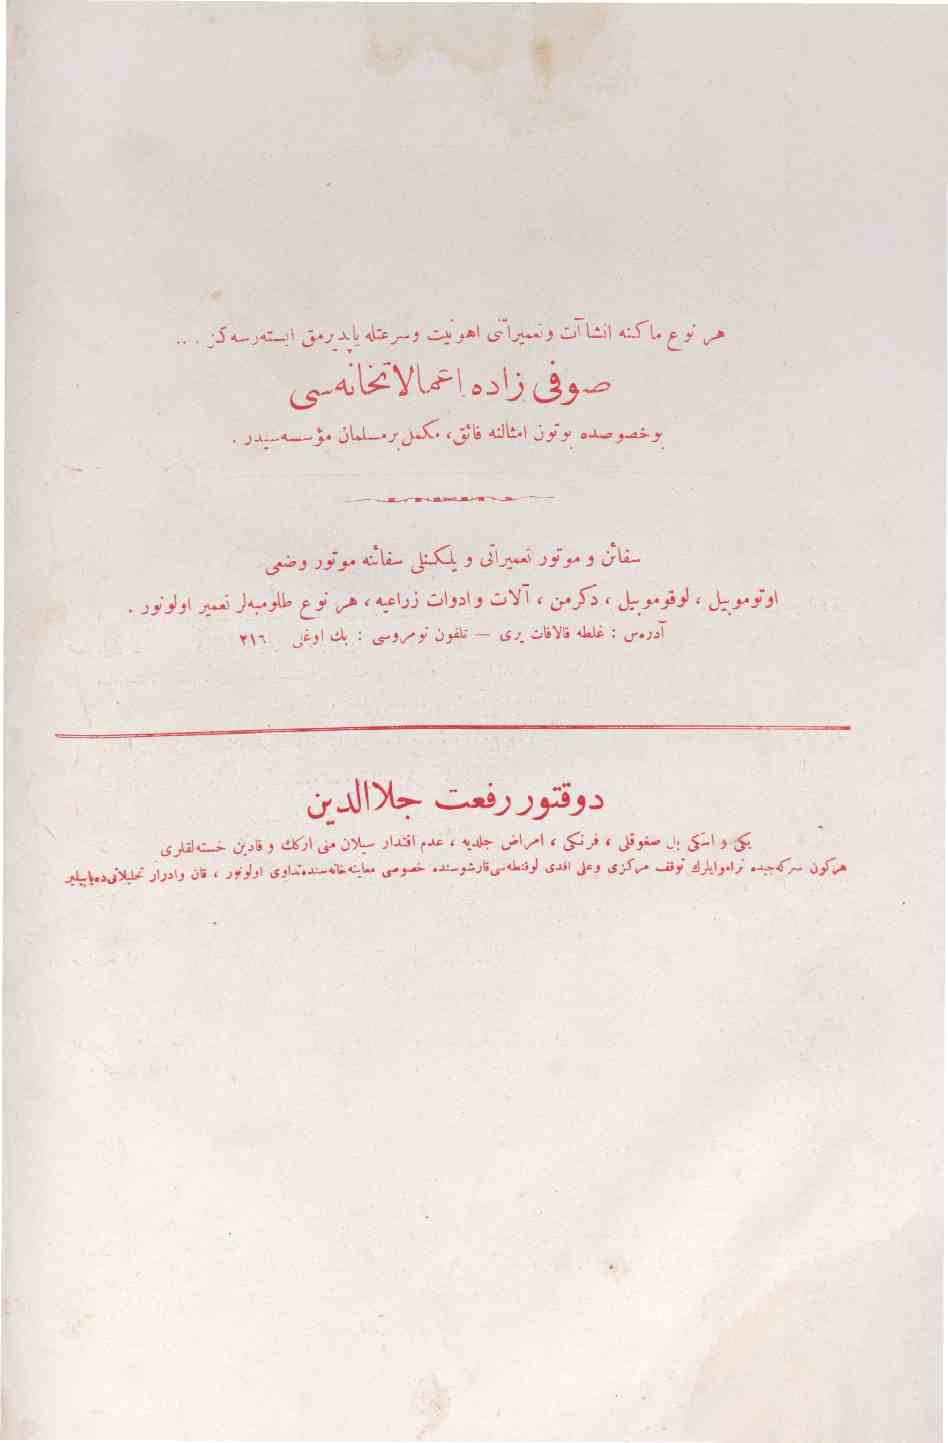 هر نوع ماكنه انشاآت وتعميراتنى اهونيت وسرعتله ياپديرمق ايسته‌رسه‌كز ....
صوفى زاده اعمالاتخانه‌سى
بوخصوصده بوتون امثالنه فائق، مكمل برمسلمان مؤسسه‌سيدر .
سفائن و موتور تعميراتى و يلكنلى سفائنه موتور وضعى
اوتوموبيل ، لوقوموبيل ، دكرمن ، آلات وادوات زراعيه ، هر نوع طلومبه‌لر تعمير اولونور .
آدره‌س : غلطه قالافات يرى — تلفون نومروسى : بك اوغلى ٢١٦
دوقتور رفعت جلاالدين
يكى و اسكى بل صغوقلقى ، فرنكى ، امراض جلديه ، عدم اقتدار سيلان منى اركك و قادين خسته‌لقلرى
هركون سركه‌جيده تراموايلرك توقف مركزى وعلى افندى لوقنطه‌سى قارشوسنده خصوصى معاينه‌خانه‌سنده تداوى اولونور ، قان وادرار تحليلاتى ده ياپيلير